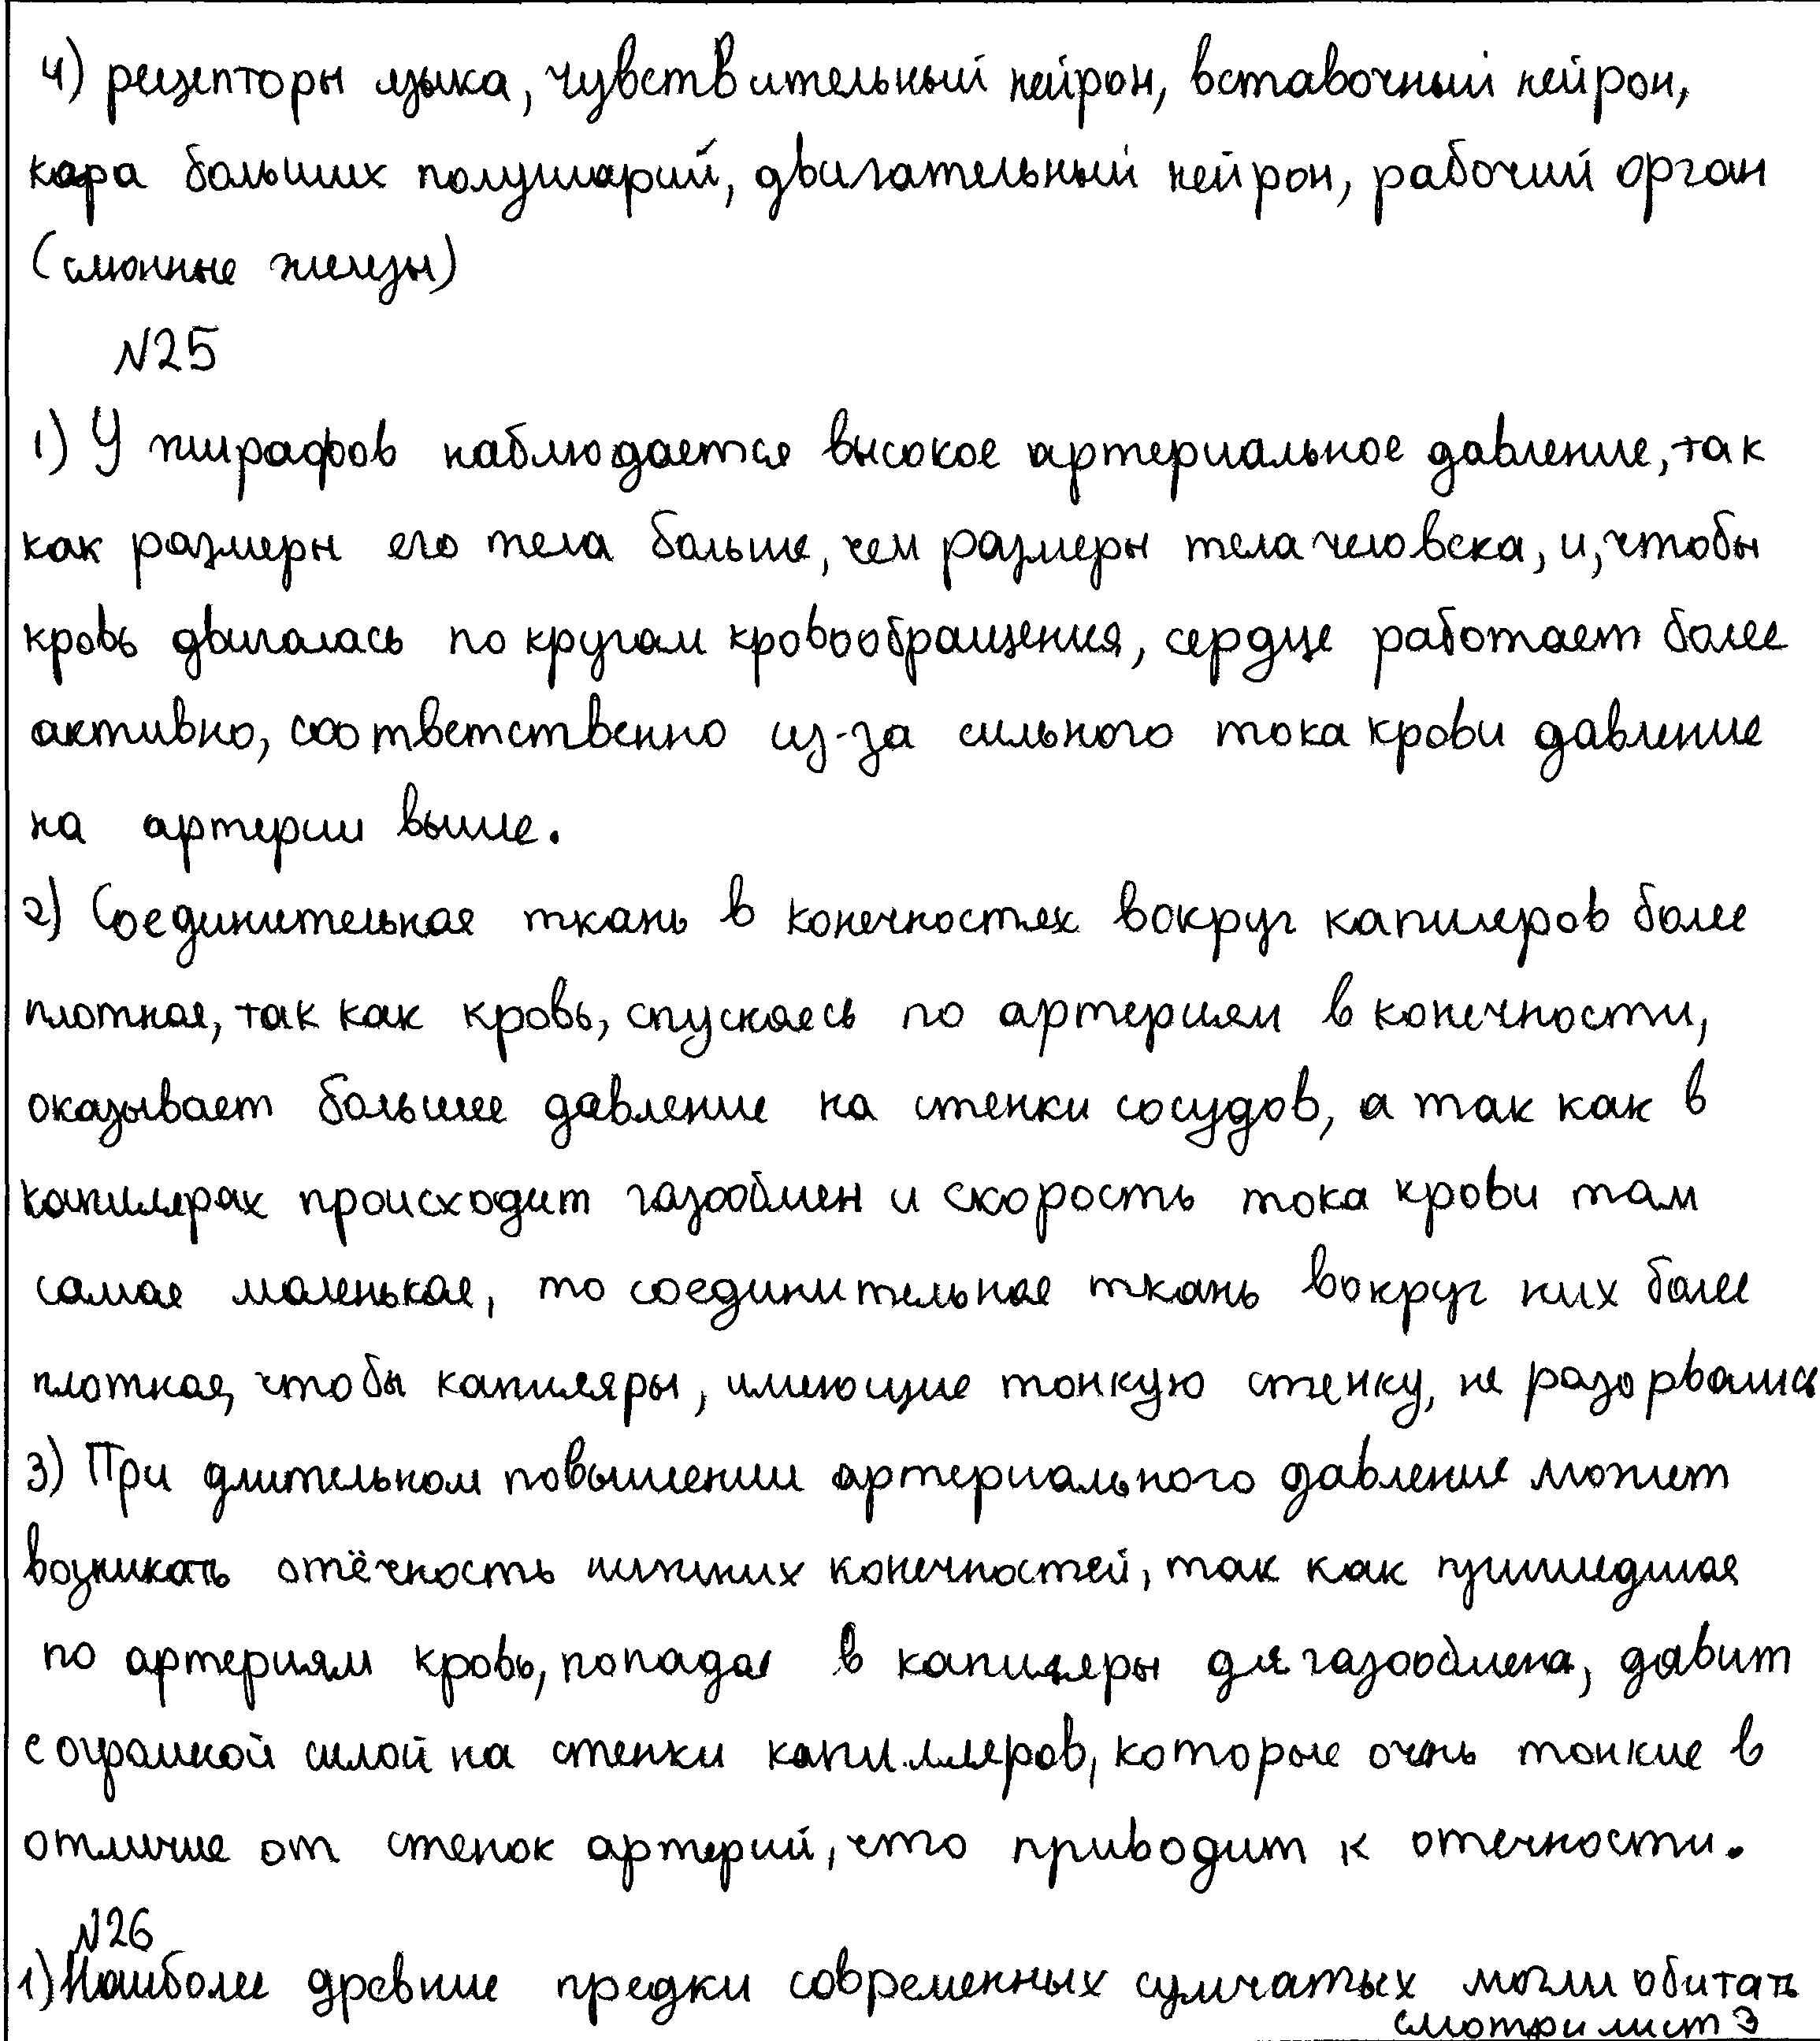 4) рецепторы языка, чувствительный нейрон, вставочный нейрон,
кора больших полушарий, двигательный нейрон, рабочий орган
(слюнные железы)
№25
1) У жирафов наблюдается высокое артериальное давление, так
как размеры его тела больше, чем размеры тела человека, и, чтобы
кровь двигалась по кругам кровообращения, сердце работает более
активно, соответственно из-за сильного тока крови давление
на артерии выше.
2) Соединительная ткань в конечностях вокруг капиляров более
плотная, так как кровь, спускаясь по артериям в конечности,
оказывает большее давление на стенки сосудов, а так как в
капилярах происходит газообмен и скорость тока крови там
самая маленькая, то соединительная ткань вокруг них более
плотная, чтобы капиляры, имеющие тонкую стенку, не разорвались
3) При длительном повышении артериального давления может
возникать отёчность нижних конечностей, так как пришедшая
по артериям кровь, попадая в капиляры для газообмена, давит
с огромной силой на стенки капилляров, которые очень тонкие в
отличие от стенок артерий, что приводит к отечности.
№26
1) Наиболее древние предки современных сумчатых могли обитать
смотри лист 3